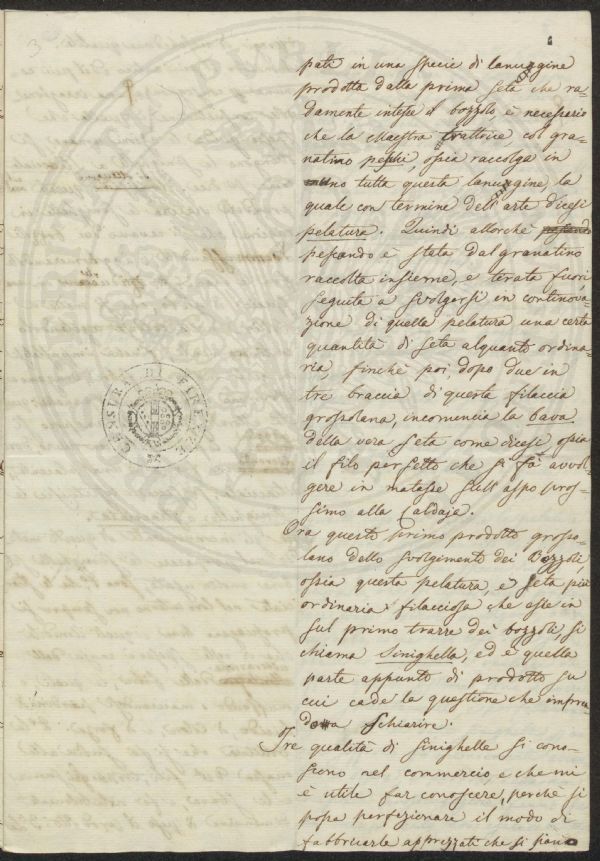 3
pate in una specie di lanuggine
prodotta dalla prima seta che ra=
damente intesse il bozzolo, è necessario
che la Maestra trattrice, col gra=
natino peschi, ossia raccolga in
uno tutta questa lanuggine, la
quale con termine dell'arte dicesi
pelatura. Quindi allorché
pescando è stata dal granatino
raccolta insieme, e tirata fuori
seguita a svolgersi in continova=
zione di quella pelatura una certa
quantità di seta alquanto ordina=
ria, finchè poi, dopo due in
tre braccia di questa filaccia
grossolana, incomincia la bava
della vera seta come dicesi ossia
il filo perfetto che si fà avvol=
gere in matasse sull'aspo pros=
simo alla Caldaja.
Ora questo primo prodotto grosso=
lano dello svolgimento dei Bozzoli,
ossia questa pelatura, e seta più
ordinaria filacciosa che esce in
sul primo trarre dei bozzoli si
chiama Sinighella, ed è quella
parte appunto di prodotto su
cui cade la questione che
schiarire.
Tre qualità di Sinighelle si cono=
scono nel commercio e che mi
è utile far conoscere, perchè si
possa perfezionare il modo di
fabbricarle apprezzati che si siano
CENSURA DI FIRENZE